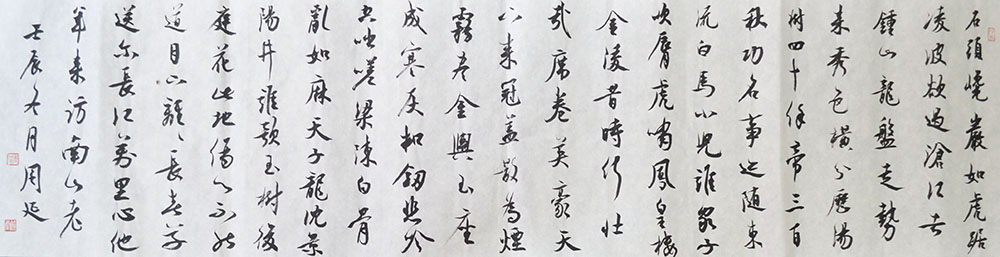 石頭巉巖如虎踞
凌波欲過滄江去
鍾山龍盤走勢
来秀色橫分歷陽
树四十餘帝三百
秋功名事迹随東
流白馬小兒誰家子
吹脣虎嘯鳳皇樓
金陵昔時何壮
哉席卷英豪天
下来冠盖散為煙
霧盡金輿玉座
成寒灰扣劒悲吟
空咄嗟梁陳白骨
亂如麻天子龍沈景
陽井誰歌玉樹後
庭花此地傷心不能
道目下離〻長春草
送尔長江萬里心他
年来訪南山老
壬辰冬月周延